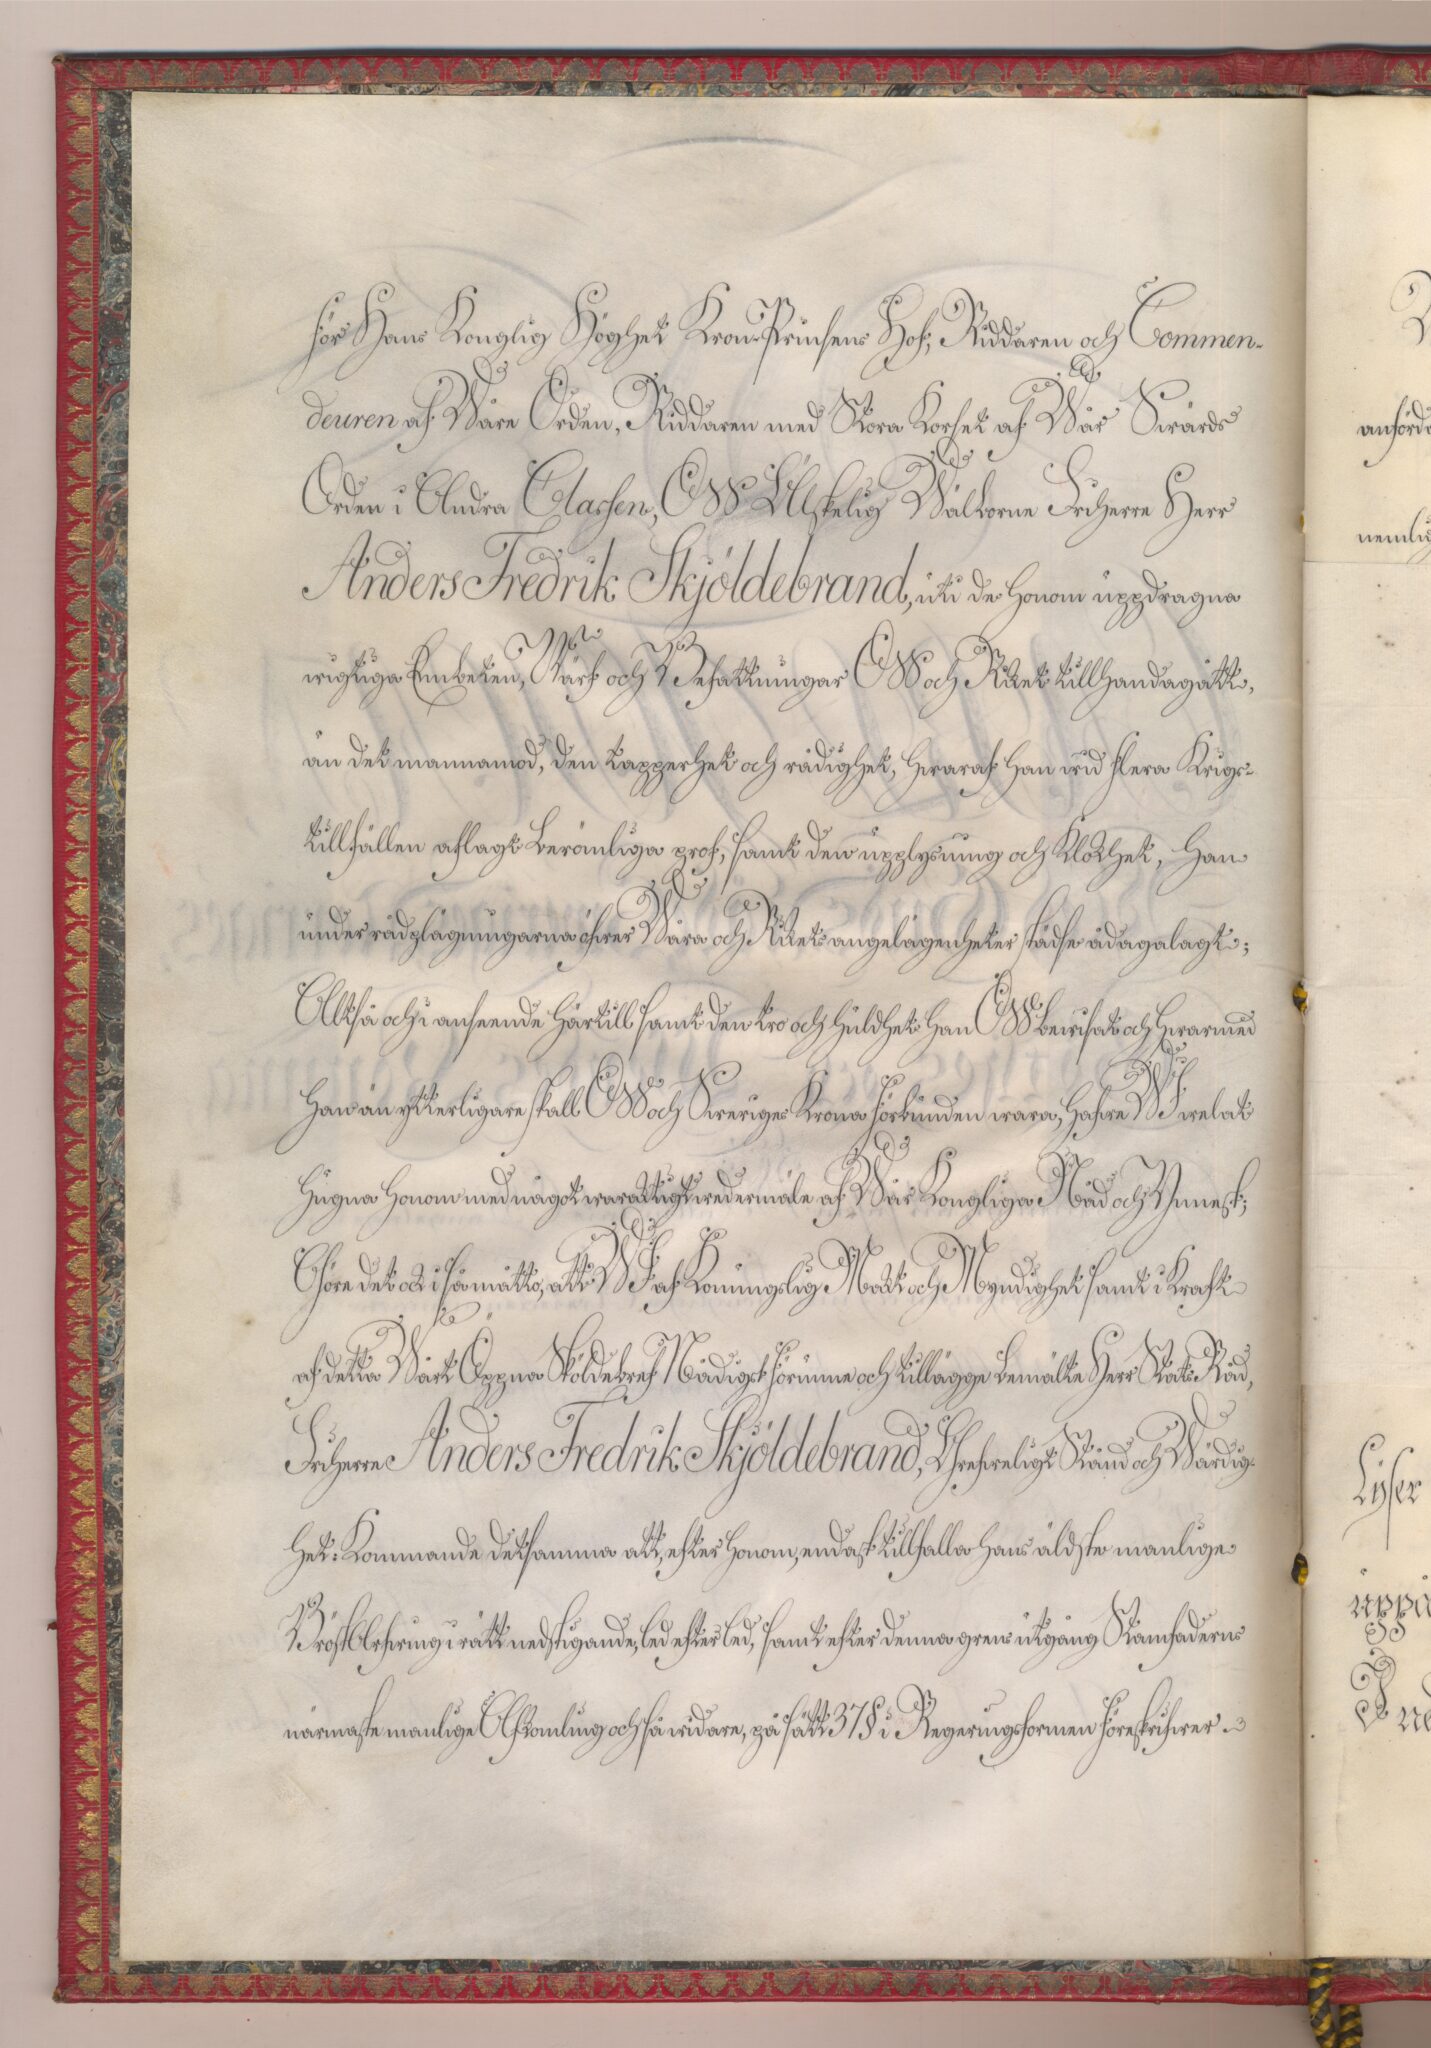 för Hans Konglig Höghet Kron-Prinsens Hof, Riddaren och Commen-
deuren af Våre Orden, Riddaren med Stora Korset af Vår Svärds
Orden i Andra Classen, OSS Älskelig Välborne Friherre Herr
Anders Fredrik Skjöldebrand, uti de honom uppdragna
vigtiga Embeten, Värf och Befattningar OSS och Riket tillhandagått,
än det mannamod, den tapperhet och rådighet, hvaraf Han vid flera Krigs-
tillfällen aflagt berömliga prof, samt den upplysning och klokhet, Han
under rådplägningarna öfver Våra och Rikets angelägenheter städse ådagalagt;
Altså och i anseende härtill samt den tro och huldhet Han OSS bevisat och hvarmed
Han än ytterligare skall OSS och Sveriges Krona förbunden vara, hafve VI velat
hugna Honom med något varaktigt vedermäle af Vår Kongliga Nåd och Ynnest;
Göre det ock i så måtto, att VI af Konungslig Makt och Myndighet samt i kraft
af detta Vårt Öppna Sköldebref Nådigst förunne och tillägge bemälte Herr Stats-Råd,
Friherre Anders Fredrik Skjöldebrand, Grefveligt Stånd och Värdig-
het: Kommande detsamma att, efter honom, endast tillfalla hans äldste manlige
Bröst-Arfving i rätt nedstigande, led efter led, samt efter denna grens utgång Stamfaderns
närmaste manlige Afkomling och så vidare, på sätt 37 § i Regeringsformen föreskrifver.
anförd
nemlig
Lyser
uppå